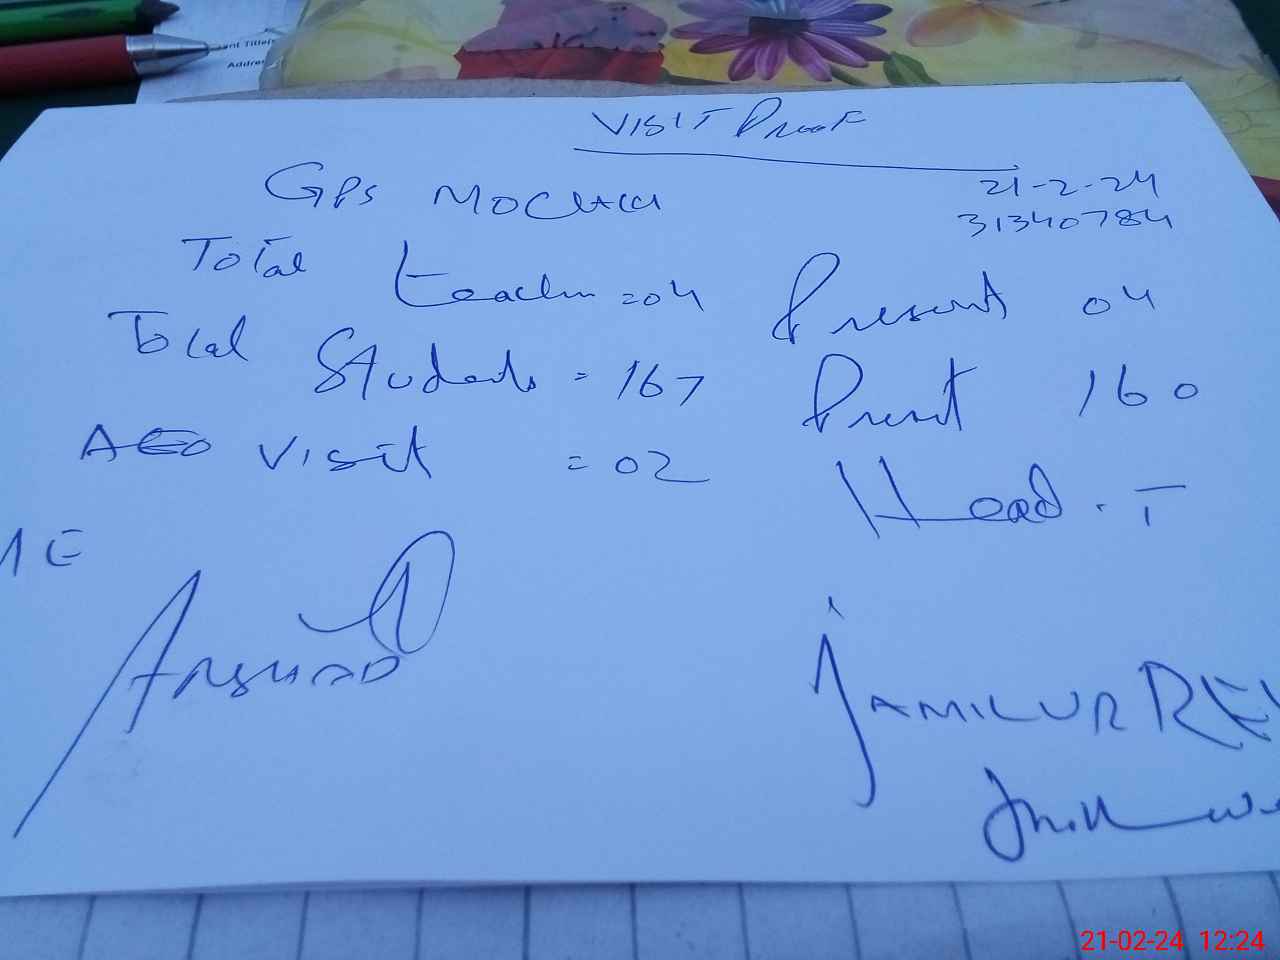 ent Title
Addre
VISIT Proof
GPS MOCHAI
21-2-24
31340784
Total teacher = 04 Present 04
Total Students = 167 Present 160
AEO Visit = 02
Head . T
ARSHAD
JAMILUR RE
21-02-24 12:24